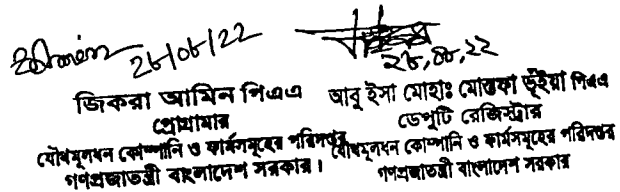 28/08/22
28,08,22
জিকরা আমিন পিএএ
প্রোগ্রামার
যৌথমূলধন কোম্পানি ও ফার্মসমূহের পরিদপ্তর
গণপ্রজাতন্ত্রী বাংলাদেশ সরকার।
আবু ইসা মোহাঃ মোস্তফা ভূঁইয়া পিএএ
ডেপুটি রেজিস্ট্রার
যৌথমূলধন কোম্পানি ও ফার্মসমূহের পরিদপ্তর
গণপ্রজাতন্ত্রী বাংলাদেশ সরকার